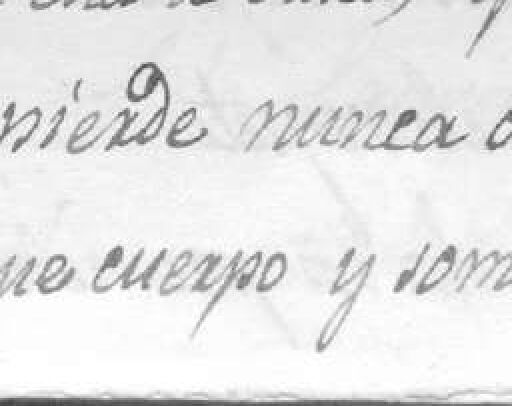 pierde nunca
que cuerpo y som